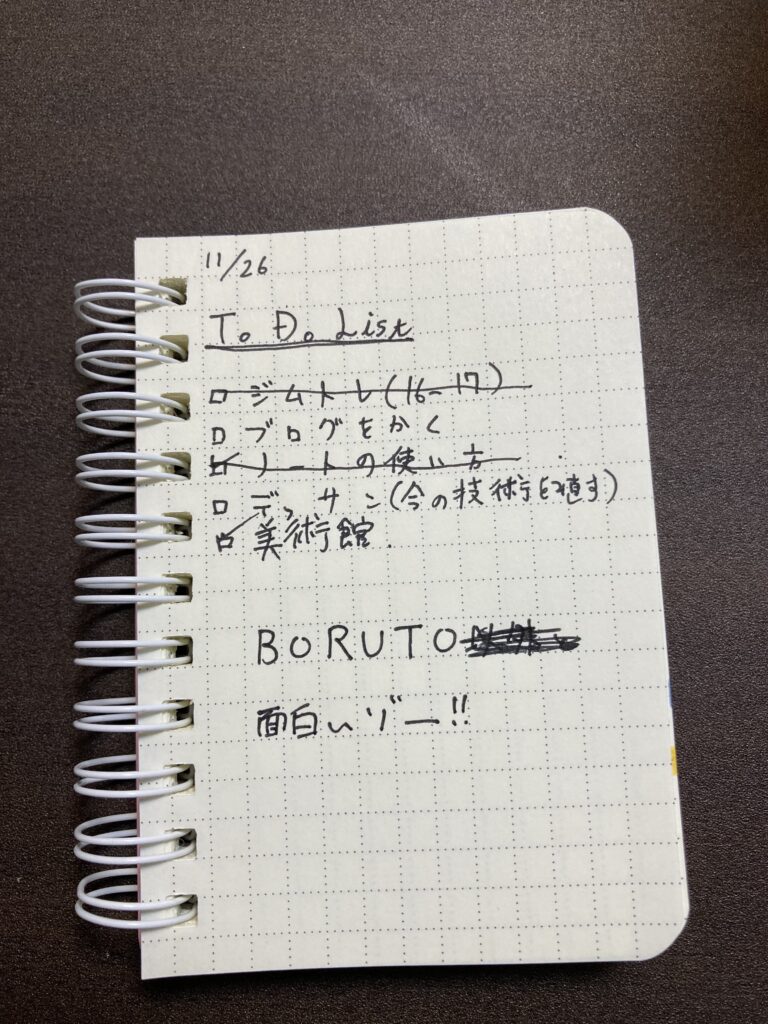 11/26
To Do List
□ ジムトレ(16-17)
□ ブログをかく
☑ ノートの使い方
□ デッサン(今の技術を残す)
☑ 美術館.
BORUTO
面白いゾー!!